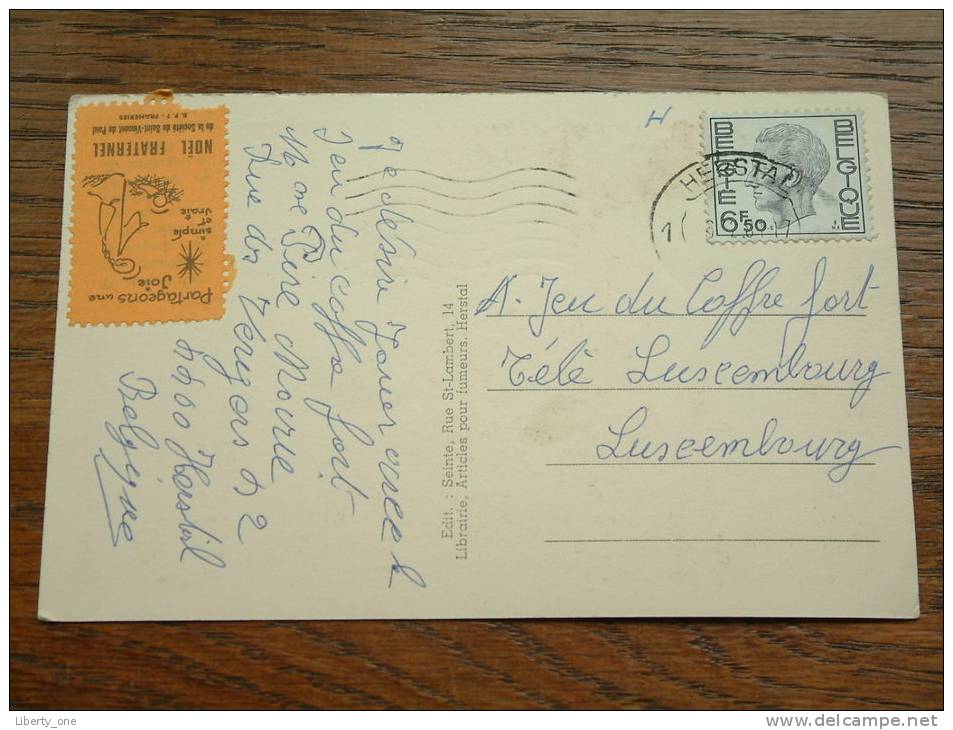 Je desire jouer avec le
jeu du coffre fort
Rue des Vergers
Herstal
Belgique
Edit. : Seinte, Rue St-Lambert, 14
Librairie, Articles pour fumeurs. Herstal
A. Jeu du Coffre fort
Télé Luxembourg
Luxembourg
H
BELGIE
BELGIQUE
6F50
HERSTAL
1
Partageons une
Joie
simple
et
vraie
NOËL FRATERNEL
de la Société de Saint-Vincent de Paul
Liberty_one
www.delcampe.net